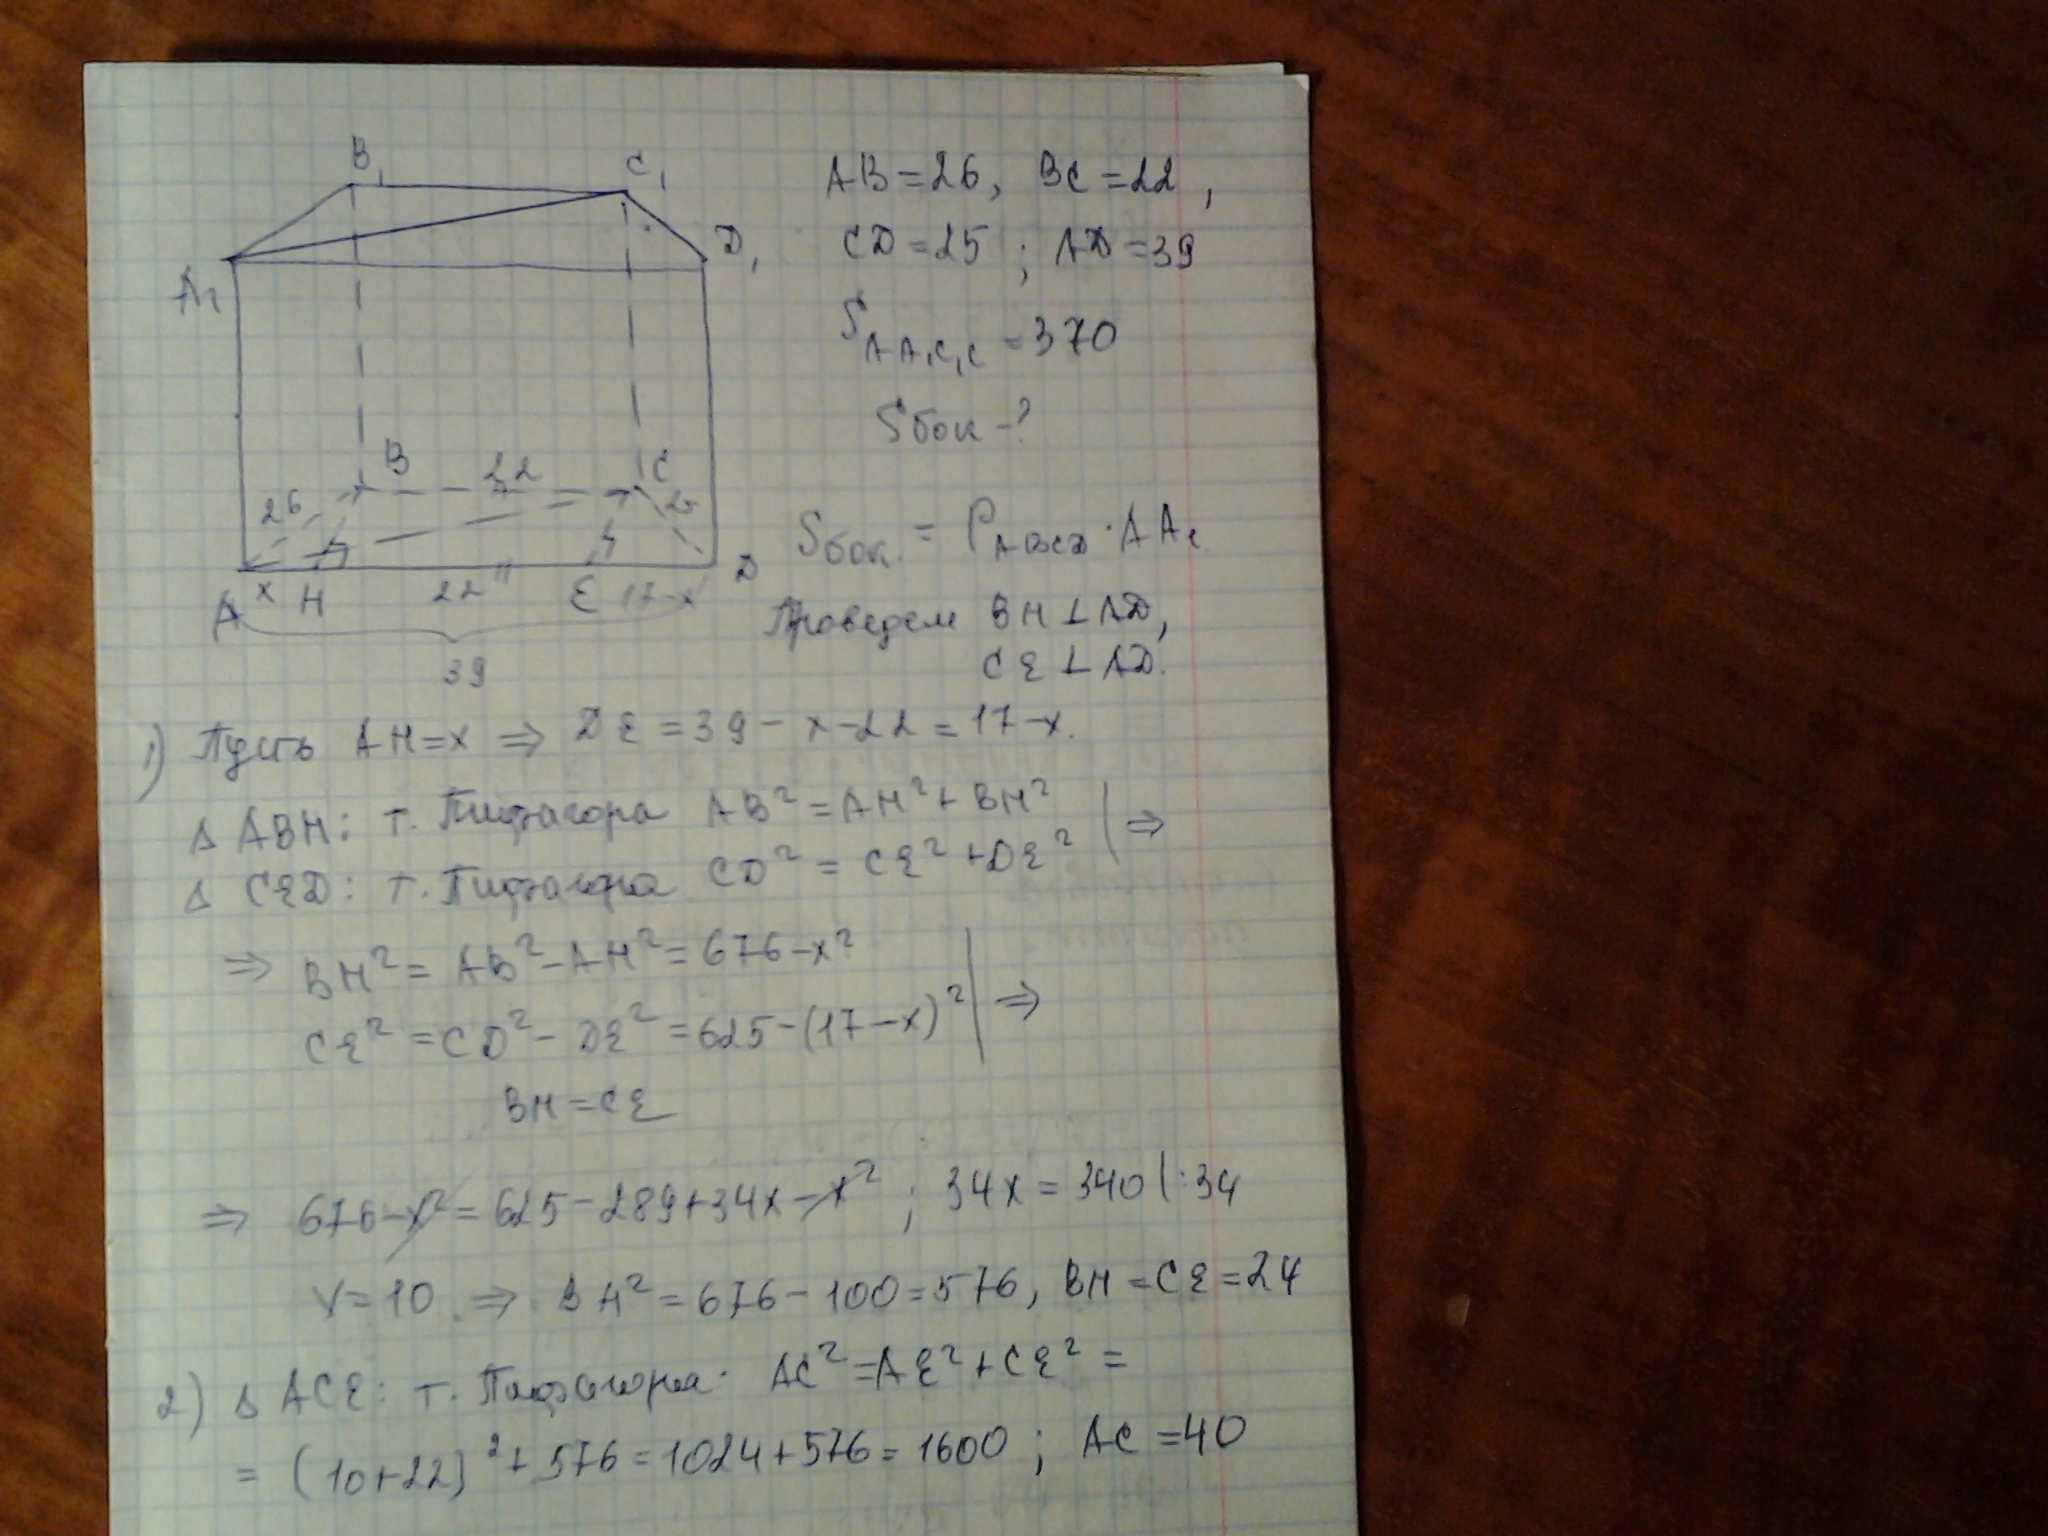 B₁
C₁
A₁
D₁
B
22
C
26
25
A
x
H
22
E
17-x
D
39
AB=26, BC=22,
CD=25; AD=39
S_AA₁C₁C=370
Sбок-?
Sбок.=P_ABCD·AA₁
Проведем BH⊥AD,
CE⊥AD.
1) Пусть AH=x ⇒ DE=39-x-22=17-x.
Δ ABH: т. Пифагора AB²=AH²+BH² | ⇒
Δ CED: т. Пифагора CD²=CE²+DE²
⇒ BH²=AB²-AH²=676-x²
CE²=CD²-DE²=625-(17-x)² | ⇒
BH=CE
⇒ 676-x²=625-289+34x-x²; 34x=340 |:34
x=10 ⇒ BH²=676-100=576, BH=CE=24
2) Δ ACE: т. Пифагора. AC²=AE²+CE²=
=(10+22)²+576=1024+576=1600; AC=40